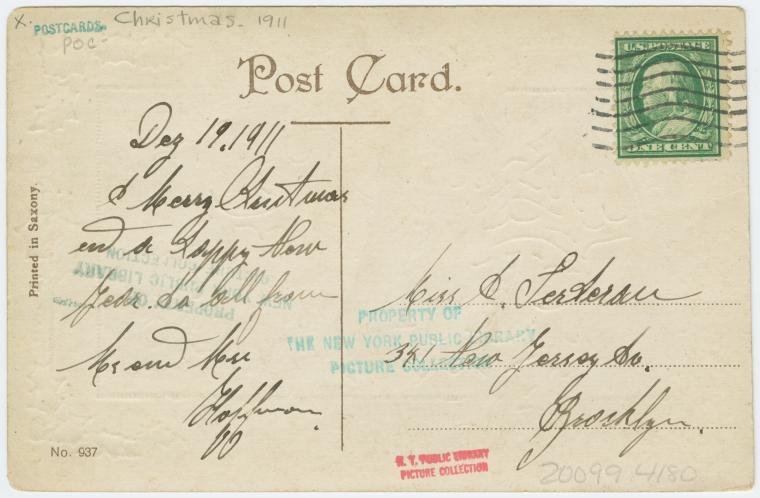 X.
POSTCARDS-
Christmas- 1911
POC-
Post Card.
U.S. POSTAGE
ONE CENT
Dez 19. 1911
A Merry Christmas
end a Happy New
Year. to all from
Mr end Mrs
Hoffman
Printed in Saxony.
No. 937
PROPERTY OF
THE NEW YORK PUBLIC LIBRARY
PICTURE COLLECTION
Miss A.
PROPERTY OF
THE NEW YORK PUBLIC LIBRARY
PICTURE COLLECTION
New Jersey Av.
Brooklyn.
N. Y. PUBLIC LIBRARY
PICTURE COLLECTION
200994180